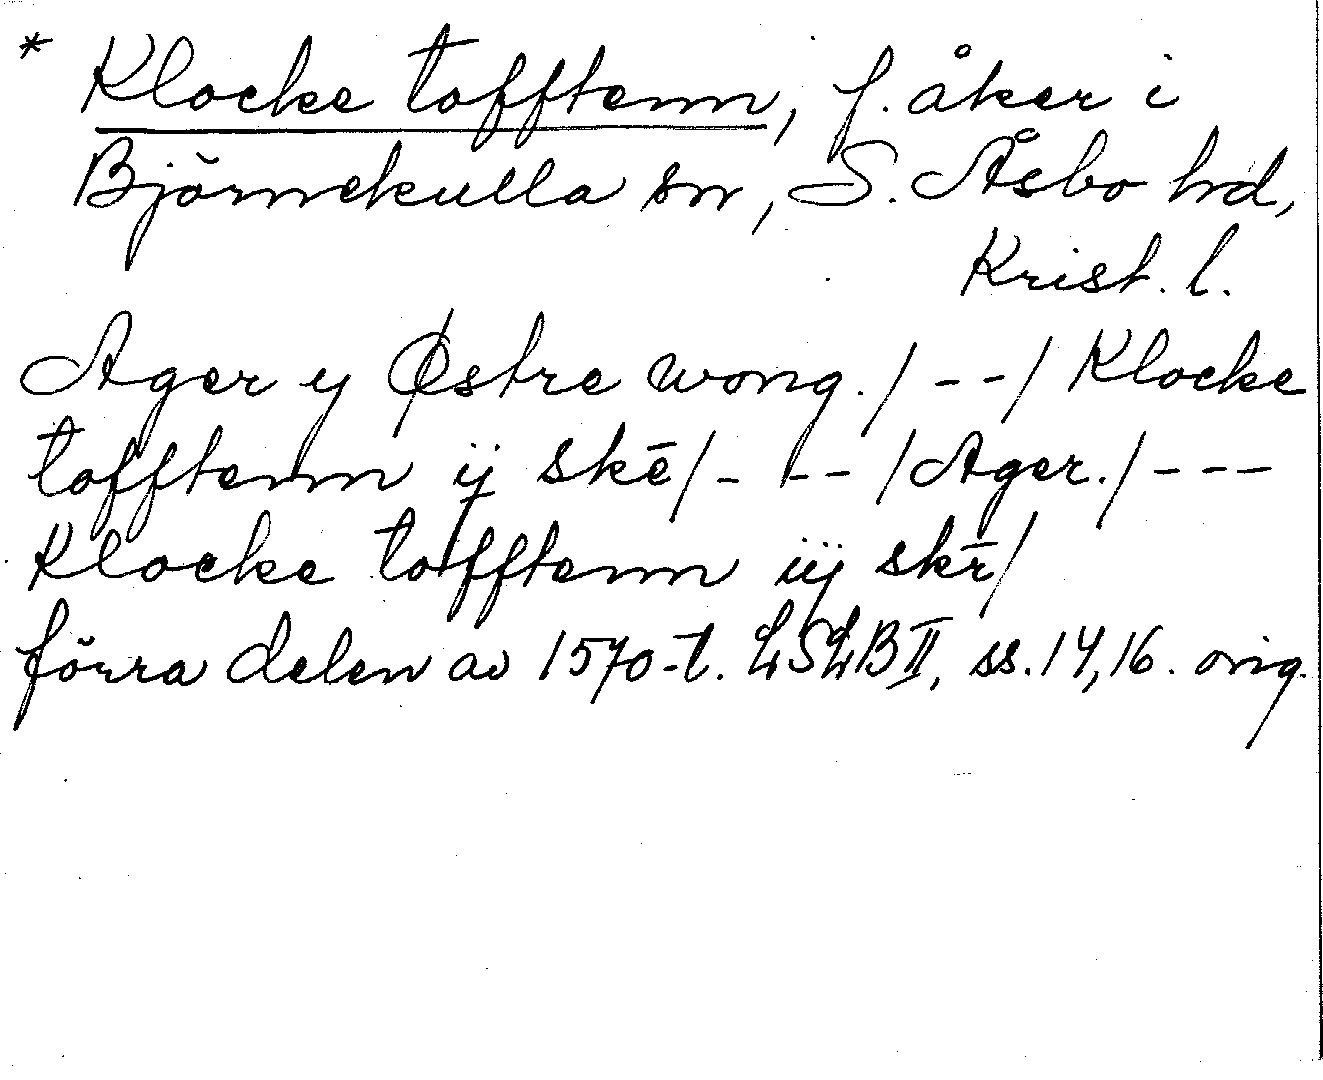 * Klocke tofftenn, f. åker i
Björnekulla sn, S. Åsbo hd,
Krist. l.
Ager y Østre wong./ - - / Klocke
tofftenn ij skē/ - - - / Ager./ - - -
Klocke tofftenn iij skē/
förra delen av 1570-t. LSLB II, ss. 14, 16. orig.